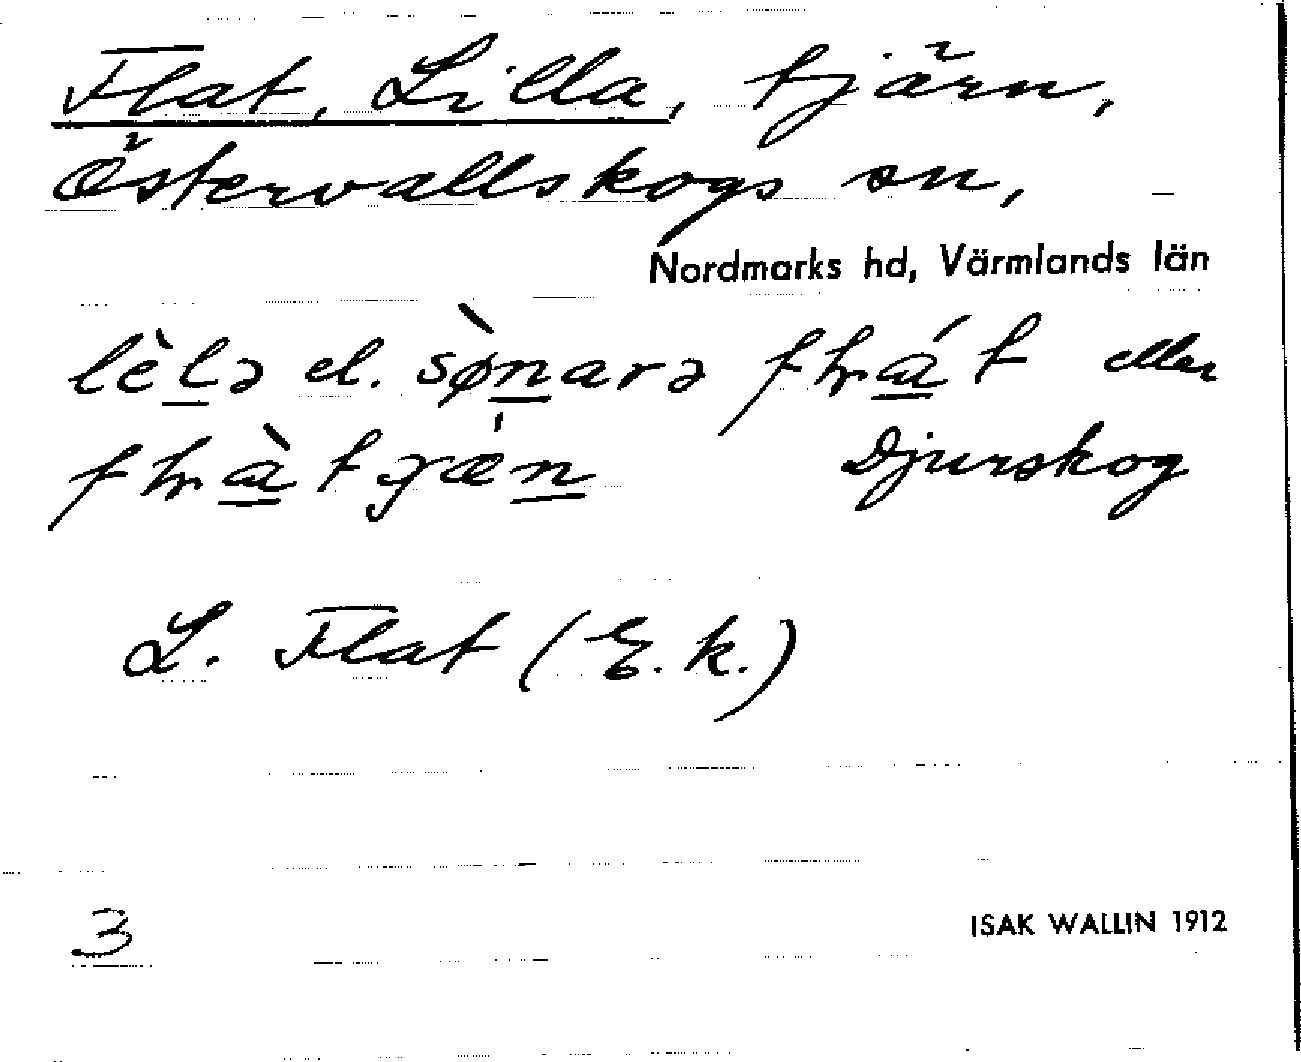 Flat, Lilla, tjärn,
Östervallskogs sn,
Nordmarks hd, Värmlands län
el. eller
Djurskog
L. Flat (E. k.)
3
ISAK WALLIN 1912